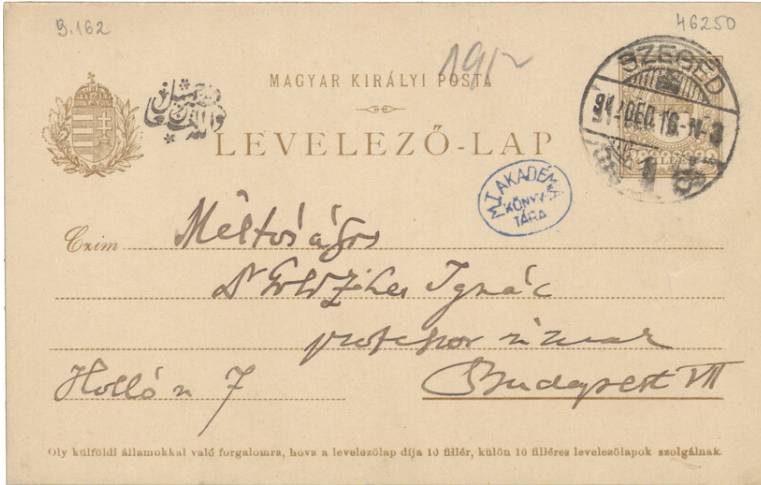 B.162
46250
191
MAGYAR KIRÁLYI POSTA
SZEGED
914 DEC. 16
LEVELEZŐ-LAP
M.T. AKADÉMIA
KÖNYV-
TÁRA
Czim Méltóságos
Dr Goldziher Ignác
professor úrnak
Holló u 7
Budapest VII
Oly külföldi államokkal való forgalomra, hova a levelezőlap díja 10 fillér, külön 10 filléres levelezőlapok szolgálnak.